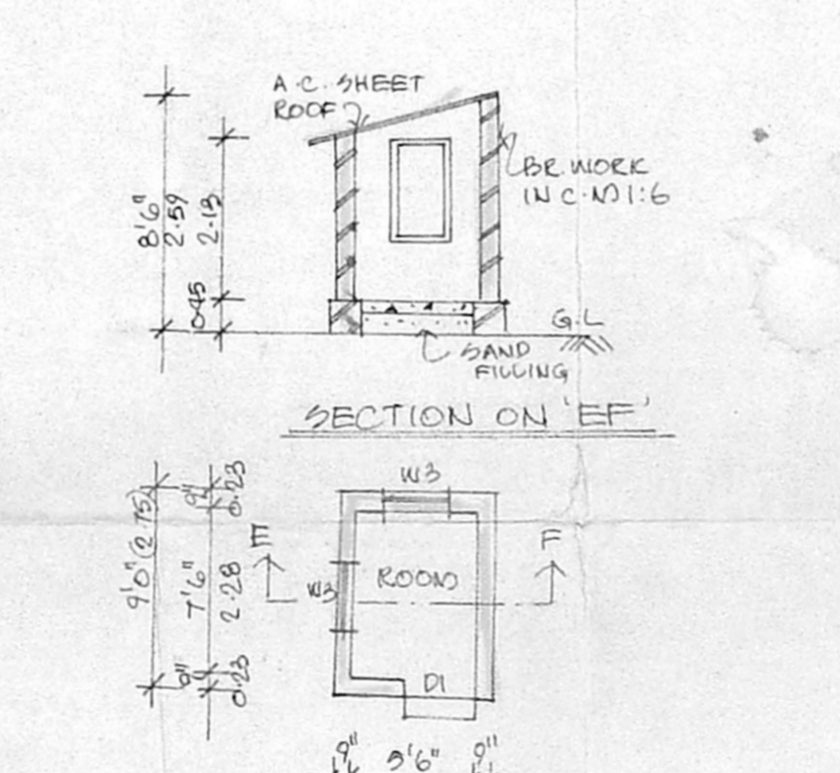 A.C. SHEET
ROOF
BR. WORK
IN C.M 1:6
8'6"
2.59
2.13
0.45
G.L
SAND
FILLING
SECTION ON 'EF'
W3
9'0" (2.75)
9"
0.23
7'6"
2.28
9"
0.23
E
F
ROOM
W3
D1
9"
5'6"
9"